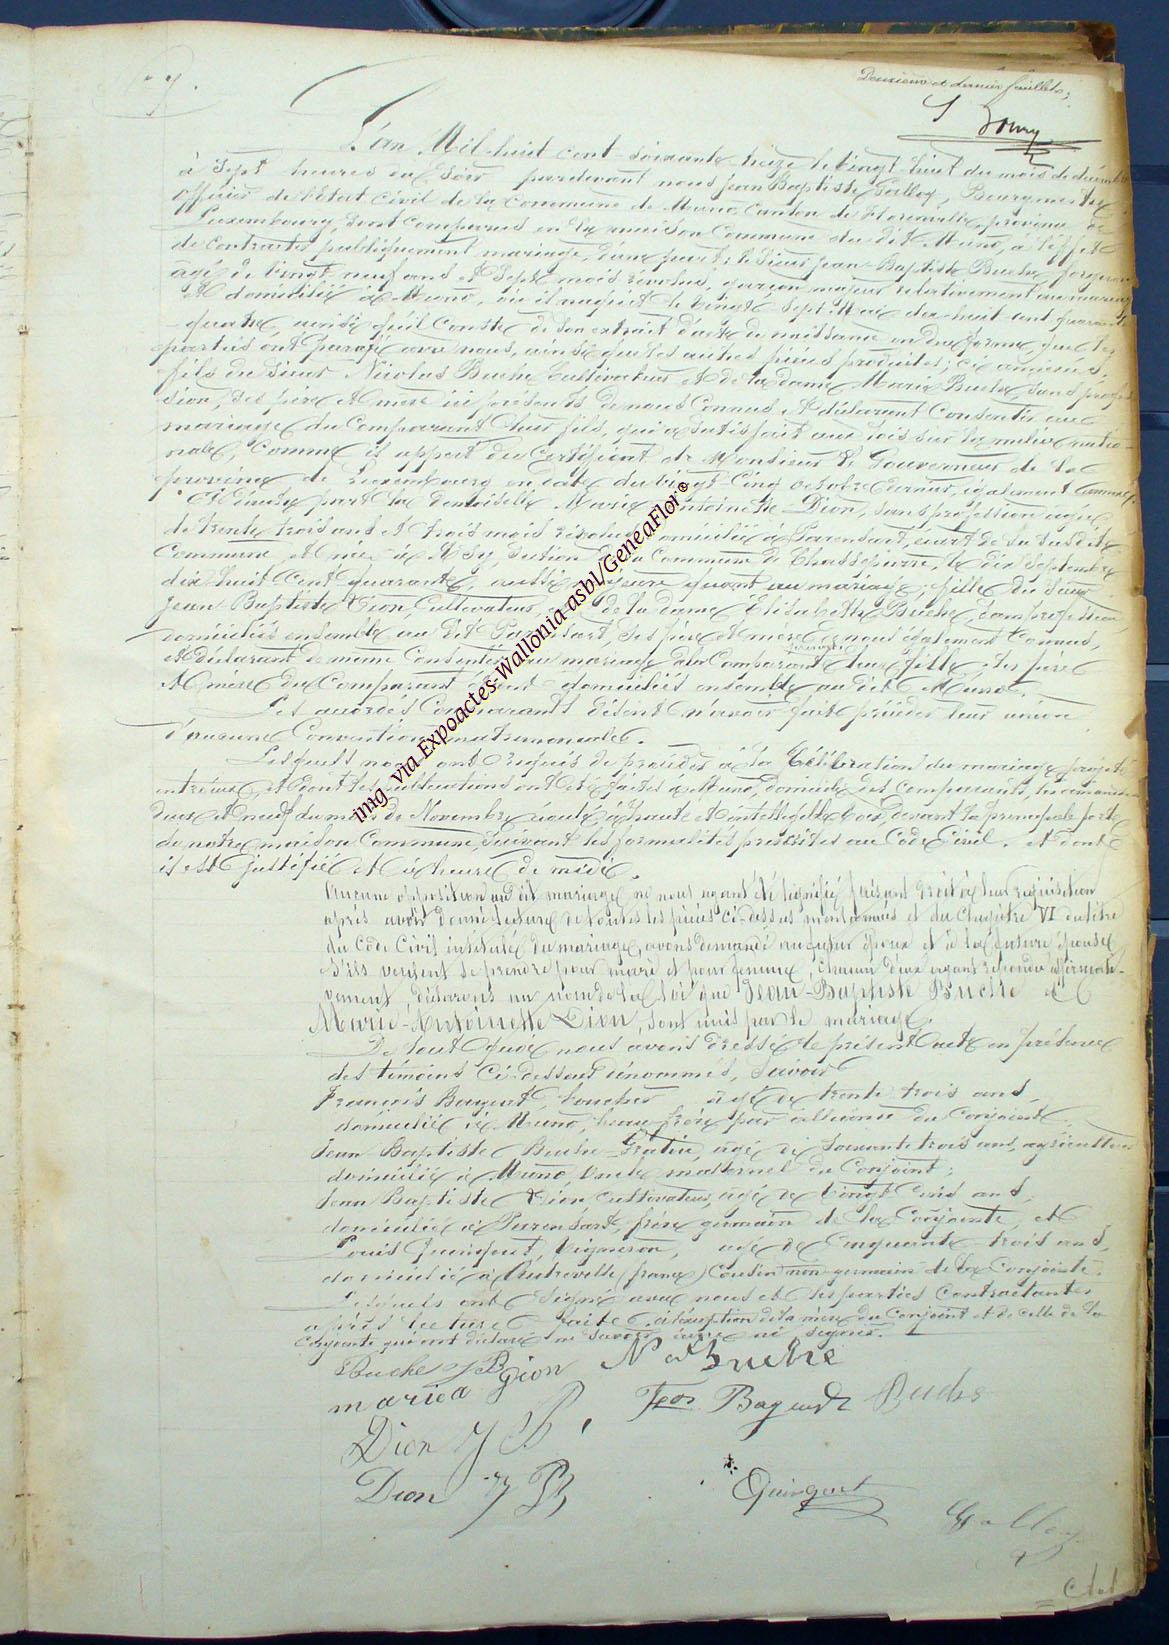 Deuxième et dernier feuillets;
L'an Mil-huit cent soixante treize le vingt-huit du mois de décembre
à Sept heures du Soir pardevant nous Jean Baptiste Galloy, Bourgmestre
officier de l'état civil de la commune de Muno, Canton de Florenville, province de
Luxembourg, sont comparus en la maison Commune du dit Muno, à l'effet
de contracter publiquement mariage, d'une part: le Sieur Jean-Baptiste Buche forgeron
âgé de vingt neuf ans et Sept mois révolus, garçon majeur relativement au mariage
et domicilié à Muno, où il naquit le vingt Sept Mai dix-huit cent quarante
quatre, ainsi qu'il Conste de son extrait d'acte de naissance en due forme, que les
parties ont parafé avec nous, ainsi que les autres pièces produites; ci annexés,
fils du Sieur Nicolas Buche Cultivateur et de la dame Marie Buche, sans profes-
sion, ses père et mère ici présents de nous Connus et déclarant Consentir au
mariage du Comparant leur fils, qui a satisfait aux lois sur la milice natio-
nale, Comme il appert du Certificat de Monsieur le Gouverneur de la
province de Luxembourg en date du vingt Cinq octobre dernier, également annexé;
Et d'autre part la demoiselle Marie Antoinette Dion, sans profession âgée
de trente trois ans et trois mois révolus domiciliée à Parensart, écart de la susdite
Commune et née à Azy, Section de la Commune de Chassepierre, le dix Septembre
dix-huit Cent quarante, aussi majeure quant au mariage, fille du Sieur
Jean Baptiste Dion Cultivateur, et de la dame Elisabeth Buche, sans profession,
domiciliés ensemble au dit Parensart, ses père et mère de nous également Connus,
et déclarant de même Consentir au mariage de la Comparant leur fille; les père
et mère du Comparant étant domiciliés ensemble au dit Muno.
Les autres Comparants disent n'avoir fait précéder leur union
d'aucune Convention matrimoniale.
Lesquels nous ont requis de procéder à la Célébration du mariage projeté
entr'eux, et dont les publications ont été faites à Muno, domicile des comparants, les dimanches
deux et neuf du mois de Novembre écoulé à haute et intelligible voix, devant la principale porte
de notre maison Commune, Suivant les formalités prescrites au Code Civil. et dont
il est justifié et à l'heure de midi.
Aucune opposition au dit mariage ne nous ayant été signifiée, faisant droit à leur réquisition
après avoir donné lecture de toutes les pièces ci-dessus mentionnées et du Chapitre VI du titre
du Code Civil intitulé du mariage, avons demandé au futur époux et à la future épouse
s'ils veulent se prendre pour mari et pour femme, chacun d'eux ayant répondu affirmati-
vement, déclarons au nom de la loi que Jean-Baptiste Buche et
Marie-Antoinette Dion, sont unis par le mariage.
De tout quoi nous avons dressé le présent acte en présence
des témoins Ci-dessous dénommés, Savoir
François Baguet, boucher âgé de trente trois ans,
domicilié à Muno, beau frère par alliance du Conjoint,
Jean Baptiste Buche Gratia, âgé de Soixante trois ans, agriculteur
domicilié à Muno, Oncle maternel du Conjoint;
Jean Baptiste Dion cultivateur, âgé de vingt Cinq ans,
domicilié à Parensart, frère germain de la Conjointe, et
Louis Guingeut, Vigneron, âgé de Cinquante trois ans,
domicilié à (france) Cousin non germain de la Conjointe.
Lesquels ont Signé avec nous et les parties contractantes
après lecture faite. à l'exception de la mère du Conjoint et de celle de la
Conjointe qui ont déclaré ne Savoir écrire ni signer.
Buche J B Nas Buche
maria Dion Fcois Baguet Buche
Dion J B
Dion J B Guingeut
Galloy
img via Expoactes-Wallonia asbl/GeneaFlor®